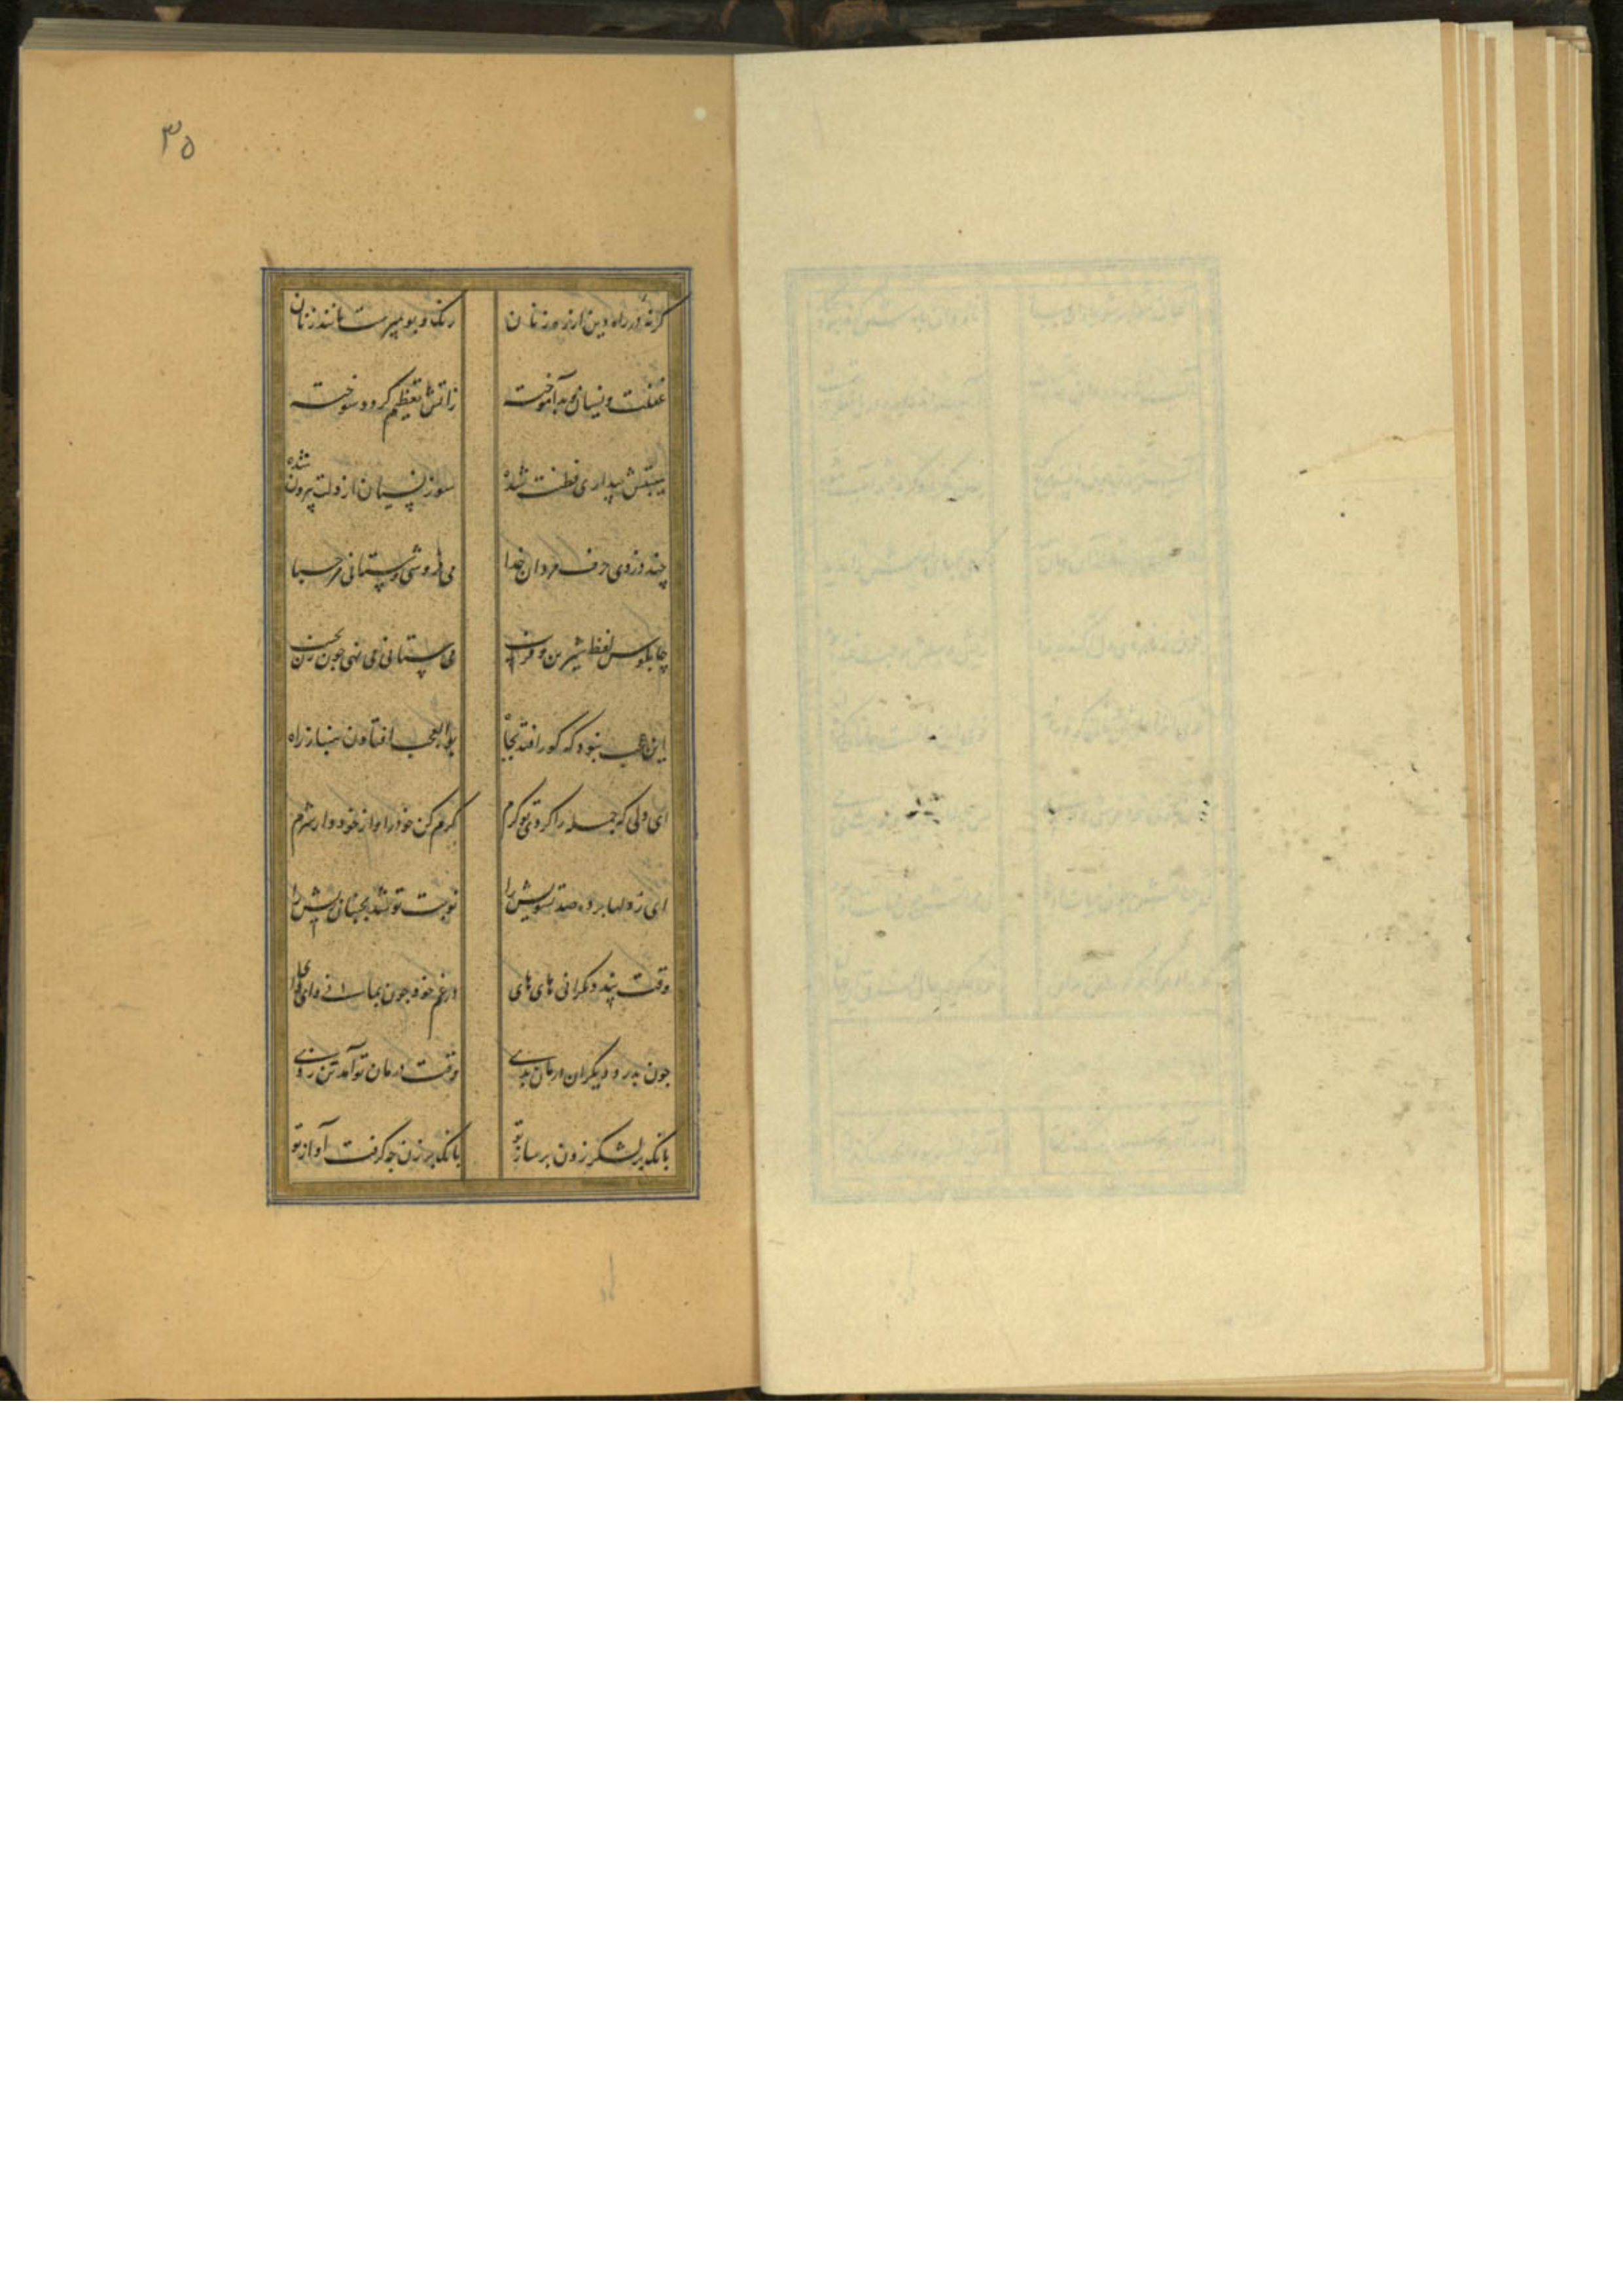 ۳۵
کرنه در راه دین از رهزنان رنک و بو مپرست مانند زنان
غفلت و نسیان بد آموخته زآتش تعظیم کردد سوخته
هیبتش بیداری فطنت شده سوز نسیان از دلت بیرون شده
چند دزدی حرف مردان خدا می فروشی و ستانی مرحبا
چابلوس لفظ شیرین و فریب می ستانی می نهی جون زر بجیب
این عجب نبود که کور افتد بجاه بوالعجب افتادن بینا ز راه
ای دلی که جمله را کردی تو کرم کرم کن خود را و از خود دار شرم
ای ز دلها برده صد تشویش را نوبت تو شد بجنبان ریش را
وقت پند دیکرانی های های در غم خود جون زنانی وای وای
جون بدرد دیکران درمان بدی وقت درمان تو آمد تن زدی
بانک بر لشکر زدن بر ساز تو بانک بر زن جه کرفت آواز تو